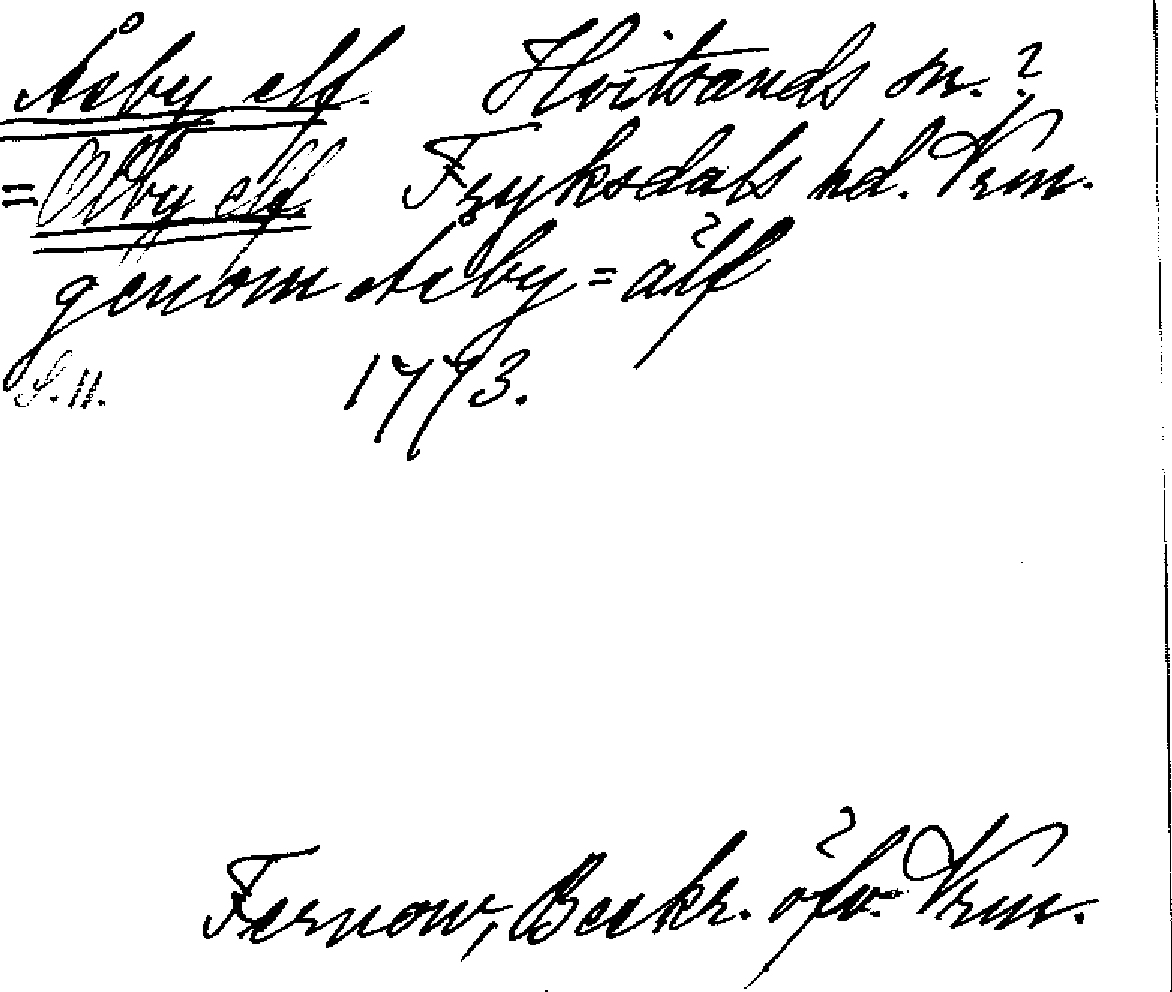 Åcby elf. Hvitsands sn.?
= Olby elf. Fryksdals hd. Vrm.
genom Åcby=älf
S. 11. 1773.
Fernow, Beskr. öfv. Vrm.